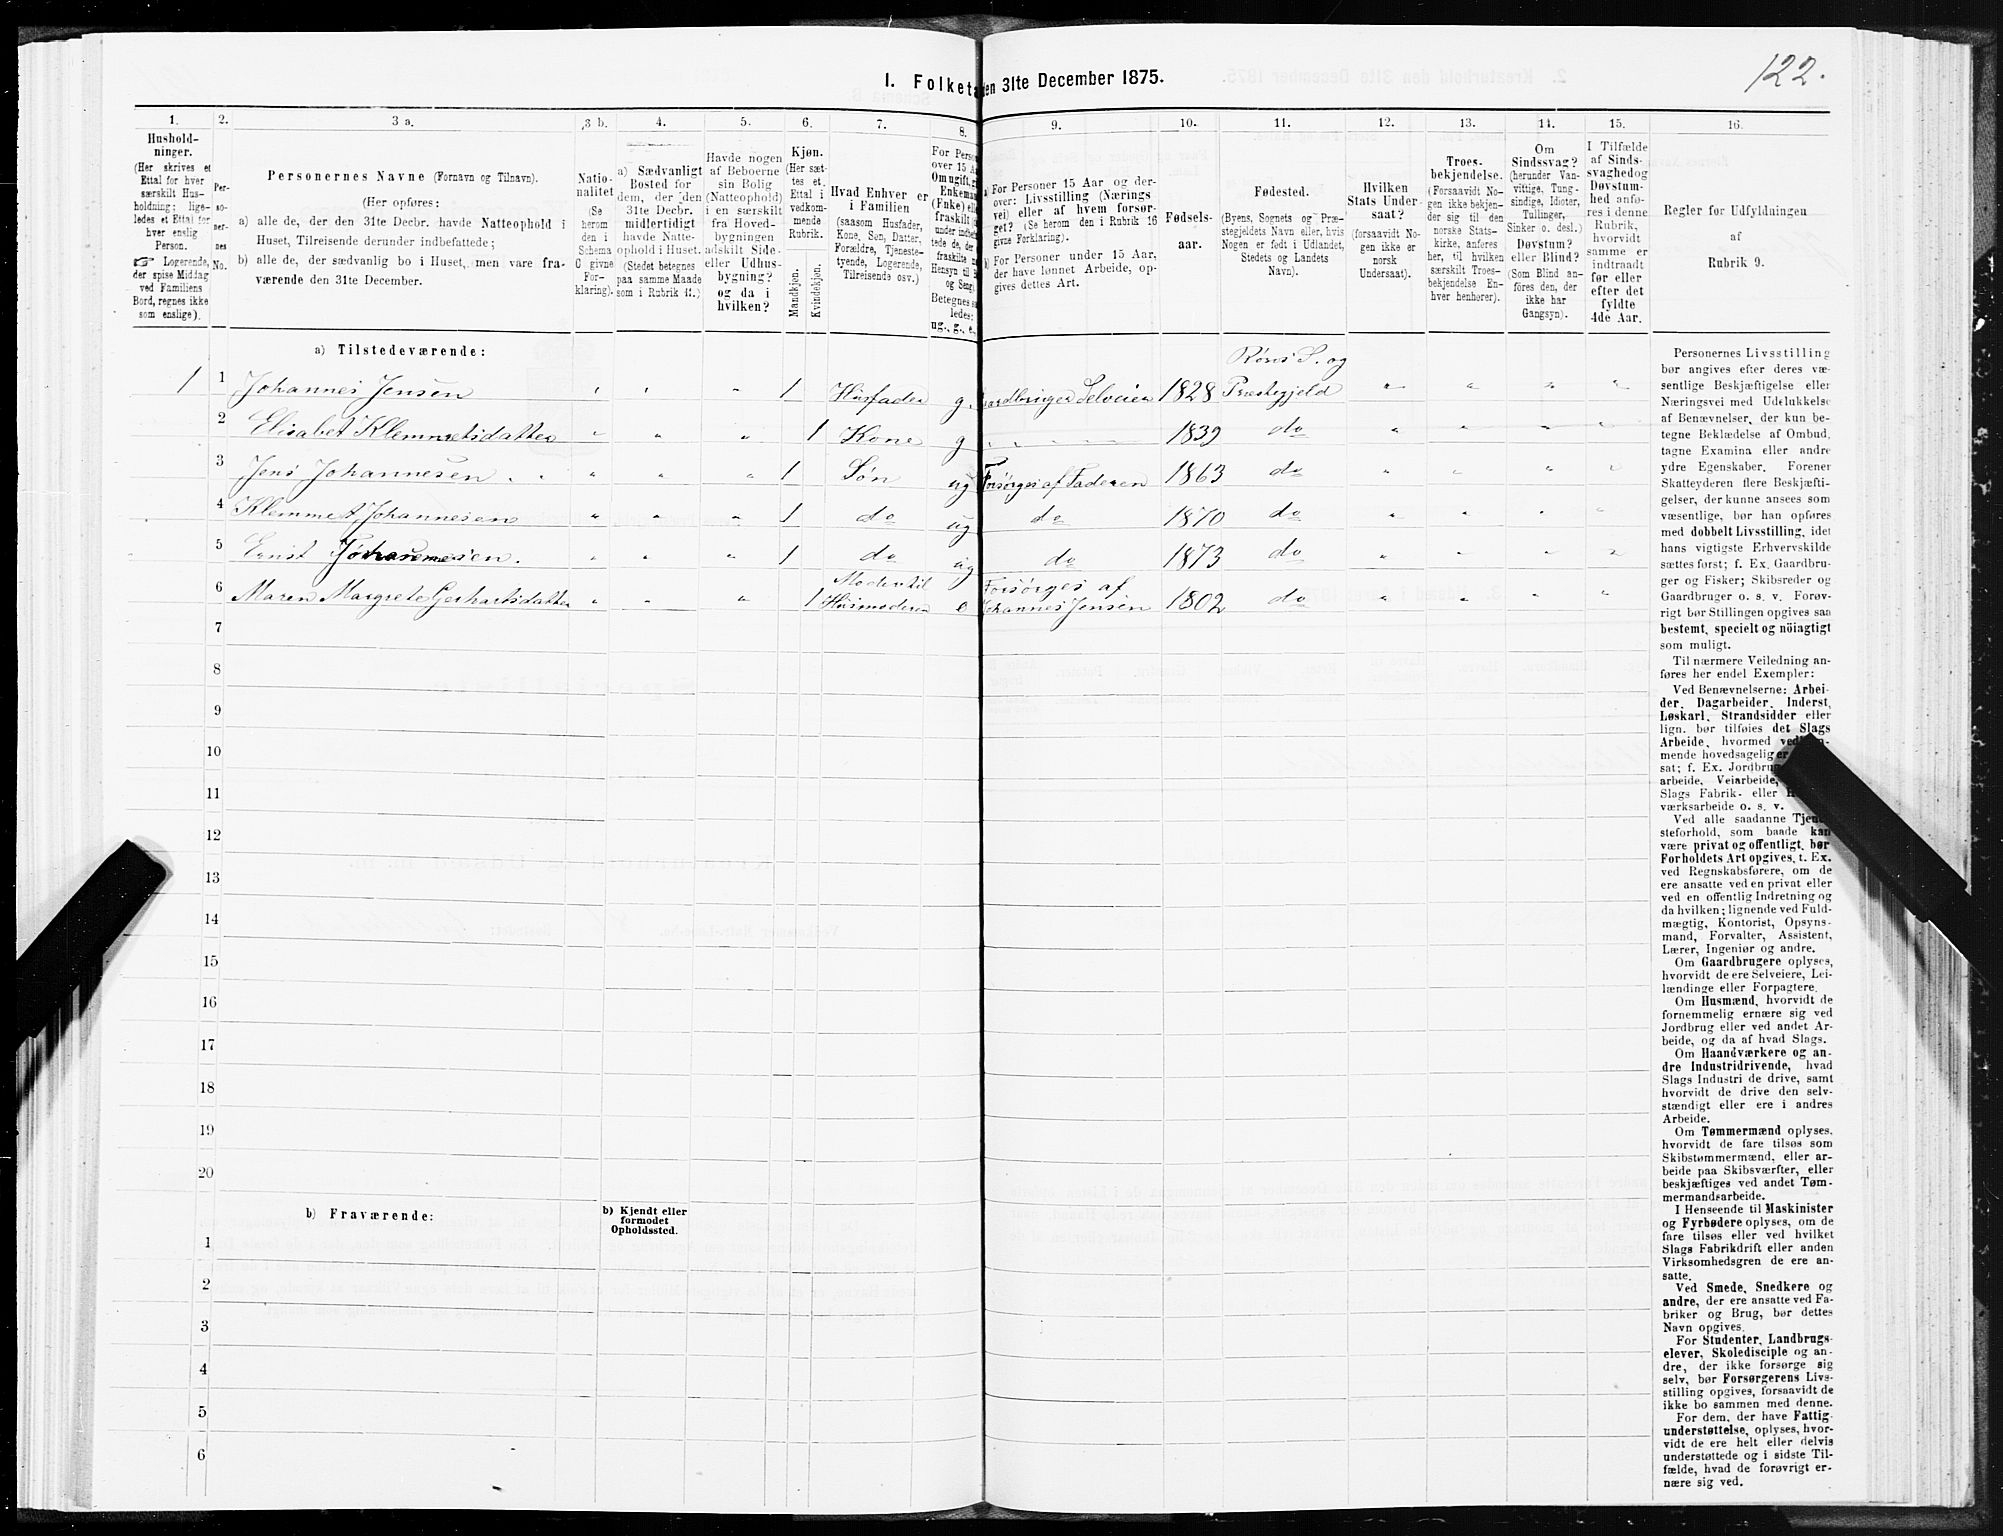 122.
1. Folketa den 31te December 1875.
1. 2. 3 a. 3 b. 4. 5. 6. 7. 8. 9. 10. 11. 12. 13. 14. 15. 16.
Hushold-
ninger.
(Her skrives et
Ettal for hver
særskilt Hus-
holdning; lige-
ledes et Ettal for
hver enslig
Person.
☞ Logerende,
der spise Middag
ved Familiens
Bord, regnes ikke
som enslige).
Per-
so-
ner-
nes
No.
Personernes Navne (Fornavn og Tilnavn).
(Her opføres:
a) alle de, der den 31te Decbr. havde Natteophold i
Huset, Tilreisende derunder indbefattede;
b) alle de, der sædvanlig bo i Huset, men vare fra-
værende den 31te December.
Natio-
nalitet
(Se
herom
den i
Schema
C givne
For-
klaring).
a) Sædvanligt
Bosted for
dem, der den
31te Decbr.
midlertidigt
havde Natte-
ophold i Huset.
(Stedet betegnes
paa samme Maade
som i Rubrik 11.)
Havde nogen
af Beboerne
sin Bolig
(Natteophold)
i en særskilt
fra Hoved-
bygningen
adskilt Side-
eller Udhus-
bygning?
og da i
hvilken?
Kjøn.
(Her sæt-
tes et
Ettal i
vedkom-
mende
Rubrik.
Mandkjøn.
Kvindekjøn.
Hvad Enhver er
i Familien
(saasom Husfader,
Kone, Søn, Datter,
Forældre, Tjeneste-
tyende, Logerende,
Tilreisende osv.)
For Perso
over 15 A
Om ugift, g
Enkema
(Enke) el
fraskilt
under indbe
tede de, der
fraskilte
Hensyn til B
og Seng).
Betegnes s
ledes:
ug., g., e.
a) For Personer 15 Aar og der-
over: Livsstilling (Nærings
vei) eller af hvem forsør-
get? (Se herom den i Rubrik 16
givne Forklaring).
b) For Personer under 15 Aar,
der have lønnet Arbeide, op-
gives dettes Art.
Fødsels-
aar.
Fødested.
(Byens, Sognets og Præ-
stegjeldets Navn eller, hvis
Nogen er født i Udlandet,
Stedets og Landets
Navn).
Hvilken
Stats Under-
saat?
(forsaavidt No-
gen ikke er
norsk
Undersaat).
Troes-
bekjendelse.
(Forsaavidt No-
gen ikke bekjen-
der sig til den
norske Stats-
kirke, anføres
her, til hvilken
særskilt Troes-
bekjendelse En-
hver henhører).
Om
Sindssvag?
(herunder Van-
vittige, Tung-
sindige, Idioter,
Tullinger,
Sinker o. desl.)
Døvstum?
eller Blind?
(Som Blind an-
føres den, der
ikke har
Gangsyn).
I Tilfælde
af Sinds-
svaghed og
Døvstum-
hed anfø-
res i denne
Rubrik,
hvorvidt
samme er
indtraadt
før eller
efter det
fyldte
4de Aar.
Regler for Udfyldningen
af
Rubrik 9.
a) Tilstedeværende:
Røros S. og
1 1 Johannes Jensen " " " 1 Husfader g. Gaardbruger Selveier 1828 Præstegjeld " " " "
2 Elisabet Klemmetsdatter " " " 1 Kone g " 1839 do " " " "
3 Jens Johannesen " " " 1 Søn ug Forsørges af Faderen 1863 do " " " "
4 Klemmet Johannesen " " " 1 do ug do 1870 do " " " "
5 Ernst Johannesen. " " " 1 do ug do 1873 do " " " "
Moder til Forsørges af
6 Maren Margrete Gerhartsdatter " " " 1 Husmoderen e Johannes Jensen 1802 do " " " "
7
8
9
10
11
12
13
14
15
16
17
18
19
20
b) Fraværende:
b) Kjendt eller
formodet
Opholdssted.
1
2
3
4
5
6
Personernes Livsstilling
bør angives efter deres væ-
sentlige Beskjæftigelse eller
Næringsvei med Udelukkelse
af Benævnelser, der kun be-
tegne Beklædelse af Ombud,
tagne Examina eller andre
ydre Egenskaber. Forener
Skatteyderen flere Beskjæfti-
gelser, der kunne ansees som
væsentlige, bør han opføres
med dobbelt Livsstilling, idet
hans vigtigste Erhvervskilde
sættes først; f. Ex. Gaardbru-
ger og Fisker; Skibsreder og
Gaardbruger o. s. v. Forøv-
rigt bør Stillingen opgives saa
bestemt, specielt og nöiagtigt
som muligt.
Til nærmere Veiledning an-
føres her endel Exempler:
Ved Benævnelserne: Arbei-
der, Dagarbeider, Inderst,
Løskarl, Strandsidder eller
lign. bør tilføies det Slags
Arbeide, hvormed
mende hovedsagelig er
sat; f. Ex. Jordbru
arbeide, Veiarbeide,
Slags Fabrik- eller
værksarbeide o. s. v.
Ved alle saadanne Tjen
steforhold, som baade kan
være privat og offentligt, bør
Forholdets Art opgives, t. Ex.
ved Regnskabsførere, om de
ere ansatte ved en privat eller
ved en offentlig Indretning og
da hvilken; lignende ved Fuld-
mægtig, Kontorist, Opsyns-
mand, Forvalter, Assistent,
Lærer, Ingeniør og andre.
Om Gaardbrugere oplyses,
hvorvidt de ere Selveiere, Lei-
lændinge eller Forpagtere.
Om Husmænd, hvorvidt de
fornemmelig ernære sig ved
Jordbrug eller ved andet Ar-
beide, og da af hvad Slags.
Om Haandværkere og an-
dre Industridrivende, hvad
Slags Industri de drive, samt
hvorvidt de drive den selv-
stændigt eller ere i andres
Arbeide.
Om Tømmermænd oplyses,
hvorvidt de fare tilsøs som
Skibstømmermænd, eller ar-
beide paa Skibsværfter, eller
beskjæftiges ved andet Tøm-
mermandsarbeide.
I Henseende til Maskinister
og Fyrbødere oplyses, om de
fare tilsøs eller ved hvilket
Slags Fabrikdrift eller anden
Virksomhedsgren de ere an-
satte.
Ved Smede, Snedkere og
andre, der ere ansatte ved Fa-
briker og Brug, bør dettes
Navn opgives.
For Studenter, Landbrugs-
elever, Skoledisciple og an-
dre, der ikke forsørge sig
selv, bør Forsørgerens Livs-
stilling opgives, forsaavidt de
ikke bo sammen med denne.
For dem, der have Fattig-
understøttelse, oplyses, hvor-
vidt de ere helt eller delvis
understøttede og i sidste Til-
fælde, hvad de forøvrigt er-
nære sig ved.